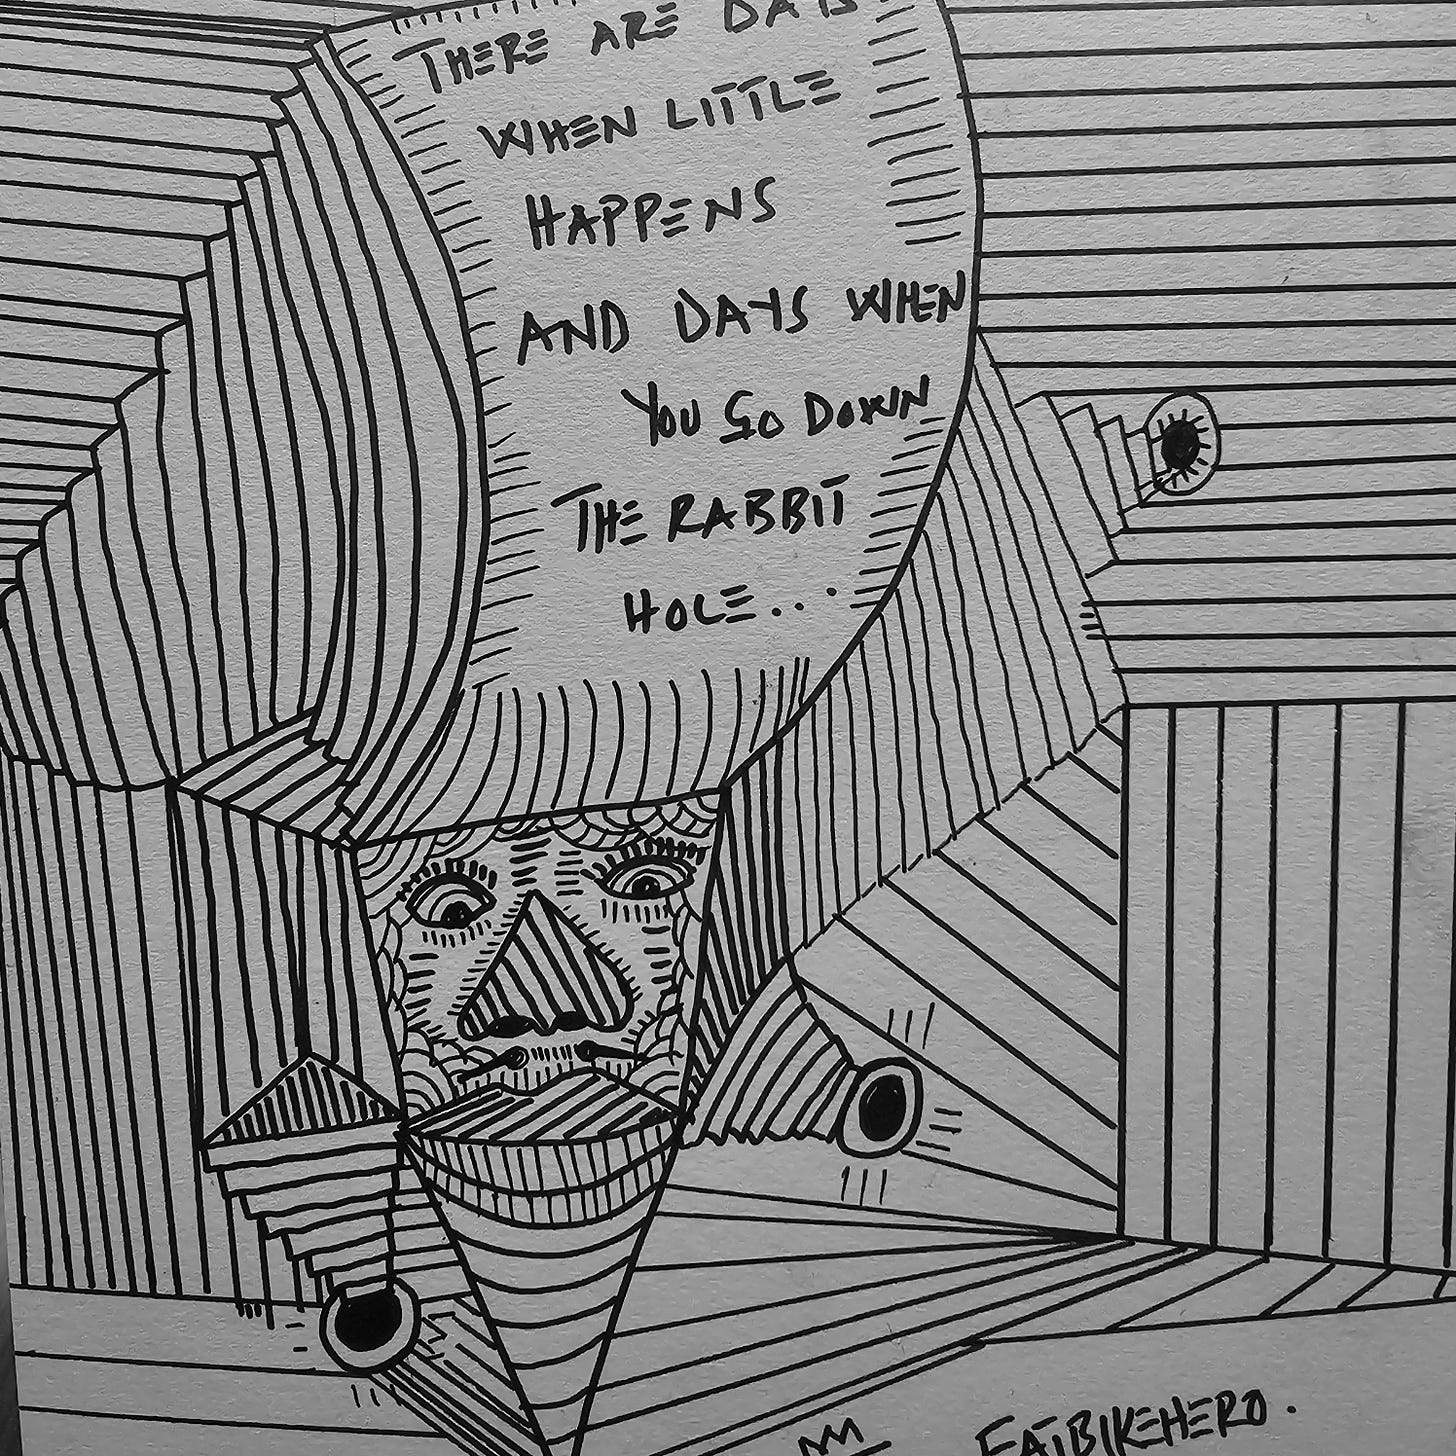 THERE ARE DAYS
WHEN LITTLE
HAPPENS
AND DAYS WHEN
YOU GO DOWN
THE RABBIT
HOLE...
FATBIKEHERO.